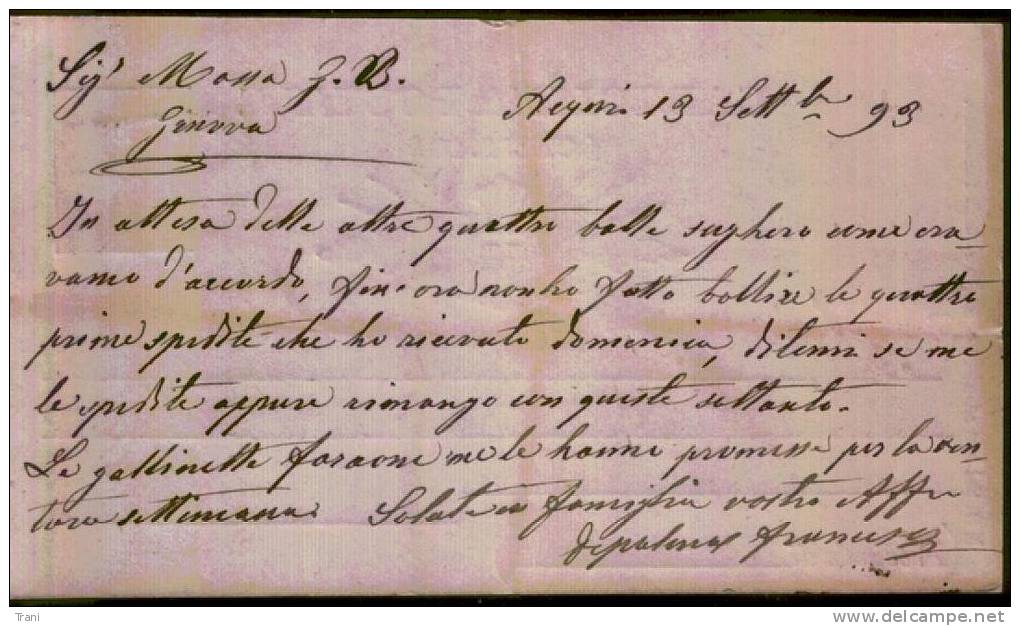 Sig.r Massa G. B.
Genova
Acqui 13 Sett.b 93
In attesa delle altre quattro balle sughero come era-
vamo d'accordo, fin'ora non ho fatto bollire le quattro
prime spedite che ho ricevuto domenica, ditemi se me
le spedite appure rimango con queste soltanto.
Le gallinelle faraone me le hanno promesse per la ven-
tura settimana. Salute in famiglia vostro Aff.o
Francesco
Trani
www.delcampe.net